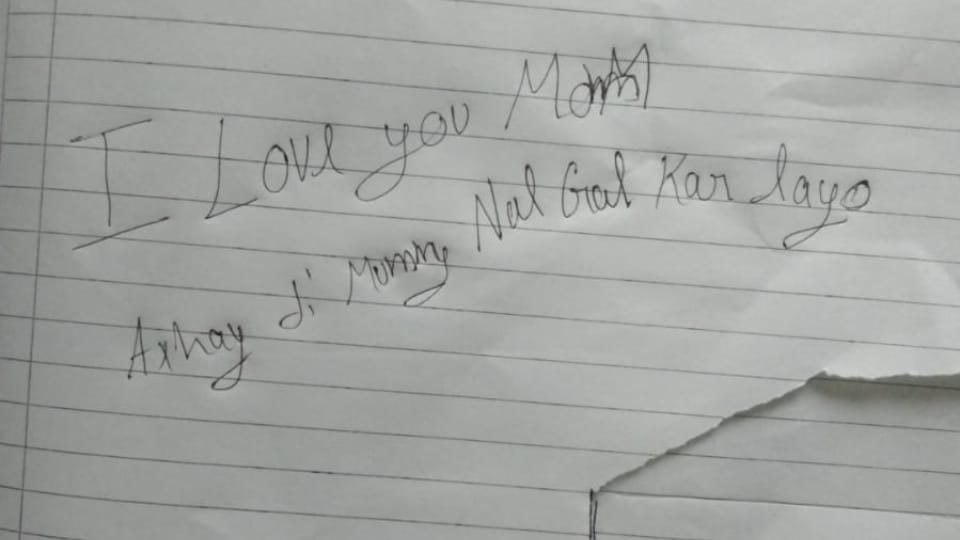 I Love you Mom
Axhay di Mummy Nal Gal Kar layo